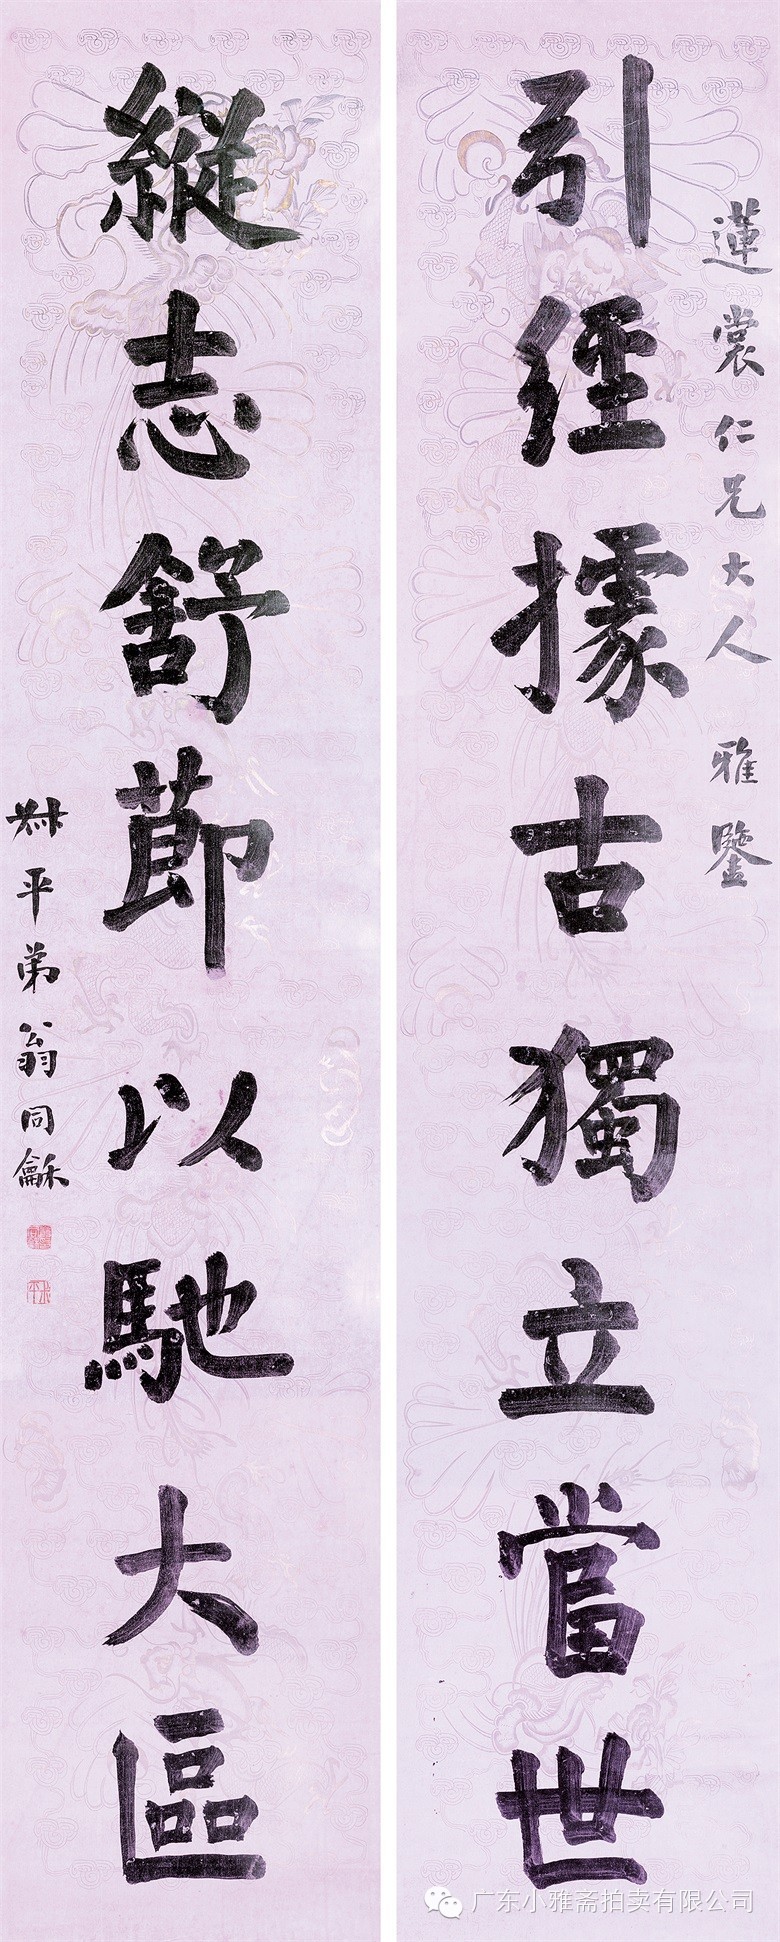 蓮裳仁兄大人雅鑒
引經據古獨立當世
縱志舒節以馳大區
叔平弟翁同龢
广东小雅斋拍卖有限公司